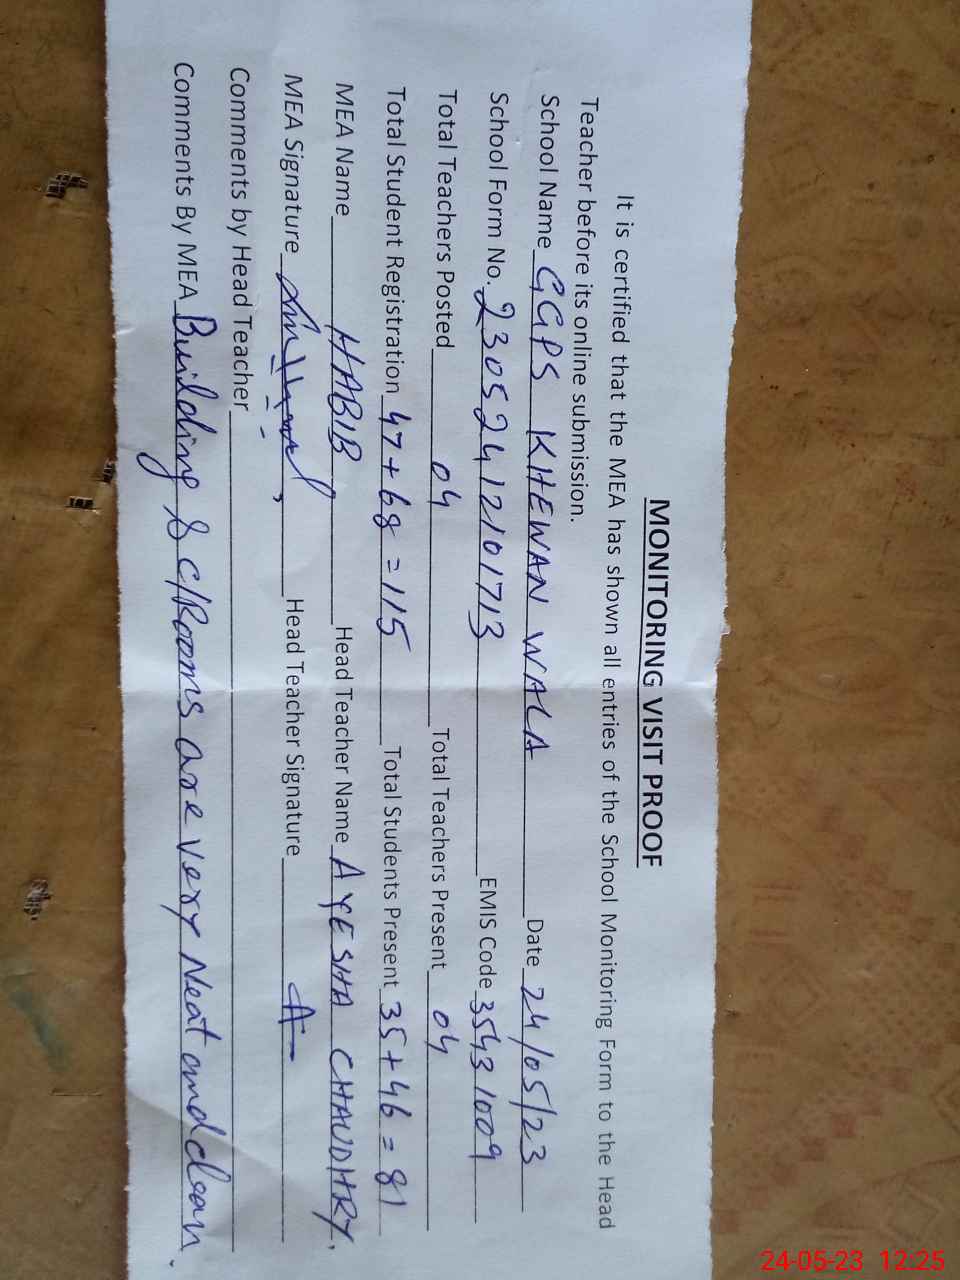 MONITORING VISIT PROOF
It is certified that the MEA has shown all entries of the School Monitoring Form to the Head
Teacher before its online submission.
School Name GGPS KHEWAN WALA Date 24/05/23
School Form No. 23052412101713 EMIS Code 35431009
Total Teachers Posted 04 Total Teachers Present 04
Total Student Registration 47+68=115 Total Students Present 35+46=81
MEA Name HABIB Head Teacher Name AYESHA CHAUDHRY.
MEA Signature Head Teacher Signature
Comments by Head Teacher
Comments By MEA Building & c/Rooms are very Neat and clean.
24-05-23 12:25